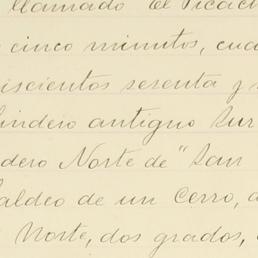 llamado "El Picach
cinco minutos, cua
iscientos sesenta y
lindero antiguo Sur
dero Norte de "San
faldeo de un Cerro, a
Norte, dos grados,